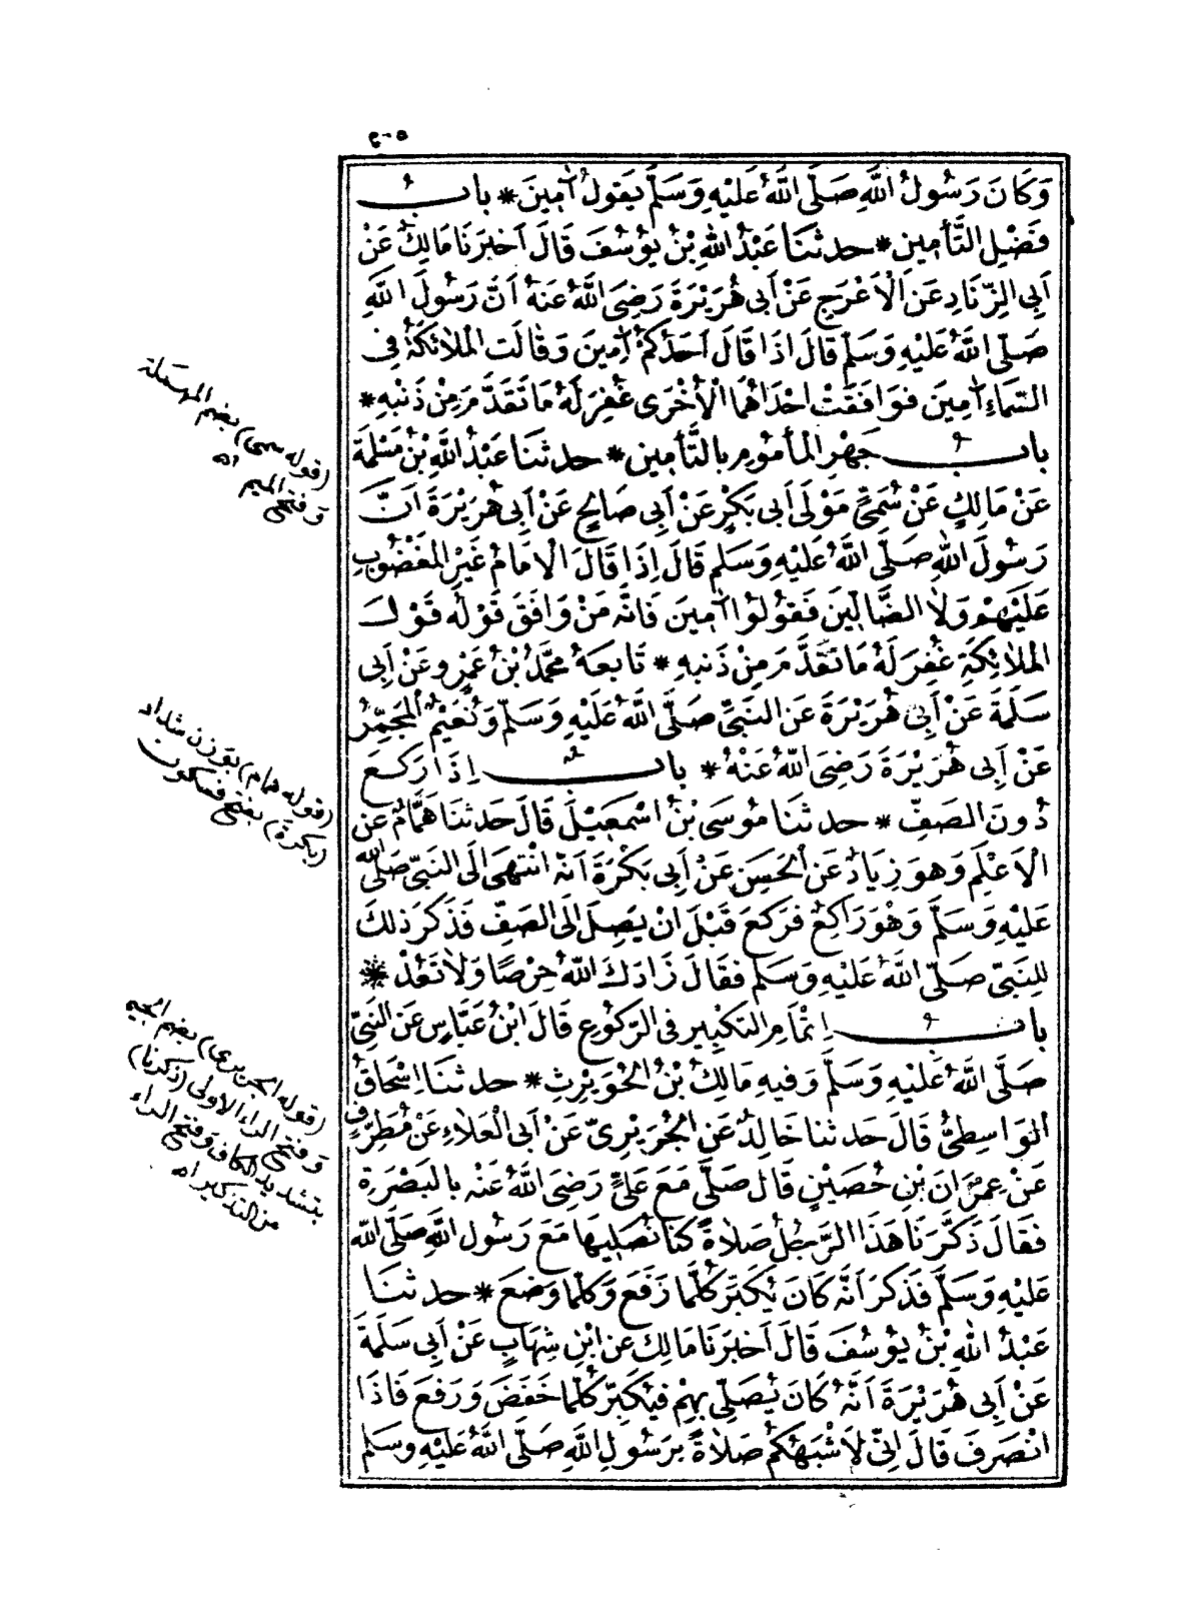 ٢٠٥
وَكَانَ رَسُولُ اللَّهِ صَلَّى اللَّهُ عَلَيْهِ وَسَلَّمَ يَقُولُ آمِينَ * بابُ
فَضْلِ التَّأْمِينِ * حدثنَا عَبْدُ اللَّهِ بْنُ يُوسُفَ قَالَ أَخْبَرَنَا مَالِكٌ عَنْ
أَبِى الزِّنَادِ عَنِ الْأَعْرَجِ عَنْ أَبِى هُرَيْرَةَ رَضِىَ اللَّهُ عَنْهُ أَنَّ رَسُولَ اللَّهِ
صَلَّى اللَّهُ عَلَيْهِ وَسَلَّمَ قَالَ اذَا قَالَ أَحَدُكُمْ آمِينَ وَقَالَتِ الْمَلَائِكَةُ فِى
السَّمَاءِ آمِينَ فَوَافَقَتْ احْدَاهُمَا الْأُخْرَى غُفِرَ لَهُ مَا تَقَدَّمَ مِنْ ذَنْبِهِ *
بابُ جَهْرِ الْمَأْمُومِ بِالتَّأْمِينِ * حدثنَا عَبْدُ اللَّهِ بْنُ مَسْلَمَةَ
عَنْ مَالِكٍ عَنْ سُمَىٍّ مَوْلَى أَبِى بَكْرٍ عَنْ أَبِى صَالِحٍ عَنْ أَبِى هُرَيْرَةَ أَنَّ
رَسُولَ اللَّهِ صَلَّى اللَّهُ عَلَيْهِ وَسَلَّمَ قَالَ إِذَا قَالَ الْامَامُ غَيْرِ الْمَغْضُوبِ
عَلَيْهِمْ وَلَا الضَّالِّينَ فَقُولُوا آمِينَ فَانَّهُ مَنْ وَافَقَ قَوْلُهُ قَوْلَ
الْمَلَائِكَةِ غُفِرَ لَهُ مَا تَقَدَّمَ مِنْ ذَنْبِهِ * تَابَعَهُ مُحَمَّدُ بْنُ عَمْرٍو عَنْ أَبِى
سَلَمَةَ عَنْ أَبِى هُرَيْرَةَ عَنِ النَّبِىِّ صَلَّى اللَّهُ عَلَيْهِ وَسَلَّمَ وَنُعَيْمٌ الْمُجْمِرُ
عَنْ أَبِى هُرَيْرَةَ رَضِىَ اللَّهُ عَنْهُ * بابٌ إِذَا رَكَعَ
دُونَ الصَّفِّ * حدثنَا مُوسَى بْنُ اسْمَعِيلَ قَالَ حَدثنَا هَمَّامٌ عَنِ
الْاعْلَمِ وَهوَ زِيَادٌ عَنِ الْحَسَنِ عَنْ أَبِى بَكْرَةَ أَنَّهُ انْتَهَى الَى النَّبِىِّ صَلَّى اللَّهُ
عَلَيْهِ وَسَلَّمَ وَهُوَ رَاكِعٌ فَرَكَعَ قَبْلَ انْ يَصِلَ الَى الصَّفِّ فَذَكَرَ ذلِكَ
لِلنَّبِىِّ صَلَّى اللَّهُ عَلَيْهِ وَسَلَّمَ فَقَالَ زَادَكَ اللَّهُ حِرْصًا وَلَا تَعُدْ *
بابُ إِتْمَامِ التَّكْبِيرِ فِى الرُّكُوعِ قَالَ ابْنُ عَبَّاسٍ عَنِ النَّبِىِّ
صَلَّى اللَّهُ عَلَيْهِ وَسَلَّمَ وَفِيهِ مَالِكُ بْنُ الْحُوَيْرِثِ * حدثنَا اسْحَاقُ
الْوَاسِطِىُّ قَالَ حَدثنَا خَالِدٌ عَنِ الْجُرَيْرِىِّ عَنْ أَبِى الْعَلَاءِ عَنْ مُطَرِّفٍ
عَنْ عِمْرَانَ بْنِ حُصَيْنٍ قَالَ صَلَّى مَعَ عَلِىٍّ رَضِىَ اللَّهُ عَنْهُ بِالْبَصْرَةِ
فَقَالَ ذَكَّرَنَا هَذَا الرَّجُلُ صَلَاةً كُنَّا نُصَلِّيهَا مَعَ رَسُولِ اللَّهِ صَلَّى اللَّهُ
عَلَيْهِ وَسَلَّمَ فَذَكَرَ أَنَّهُ كَانَ يُكَبِّرُ كُلَّمَا رَفَعَ وَكُلَّمَا وَضَعَ * حدثنَا
عَبْدُ اللَّهِ بْنُ يُوسُفَ قَالَ أَخْبَرَنَا مَالِكٌ عَنِ ابْنِ شِهَابٍ عَنْ أَبِى سَلَمَةَ
عَنْ أَبِى هُرَيْرَةَ أَنَّهُ كَانَ يُصَلِّى بِهِمْ فَيُكَبِّرُ كُلَّمَا خَفَضَ وَرَفَعَ فَاذَا
انْصَرَفَ قَالَ إِنِّى لَأَشْبَهُكُمْ صَلَاةً بِرَسُولِ اللَّهِ صَلَّى اللَّهُ عَلَيْهِ وَسَلَّمَ
(قوله سمى) بضم المهملة
وفتح الميم اه
(قوله همام) بوزن شداد
(بكرة) بفتح فسكون
(قوله الجريرى) بضم الجيم
وفتح الراء الاولى (ذكرنا)
بتشديد الكاف وفتح الراء
من التذكير اه